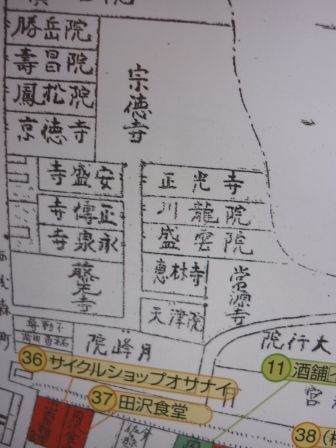 勝岳院
壽昌院
鳳松院
京徳寺
宗徳寺
安盛寺
正傳寺
永泉寺
藤先寺
正光寺
川龍院
盛雲院
惠林寺
天津院
常源寺
月峰院
大行院
36 サイクルショップオサナイ
37 田沢食堂
11 酒舗
宮
38